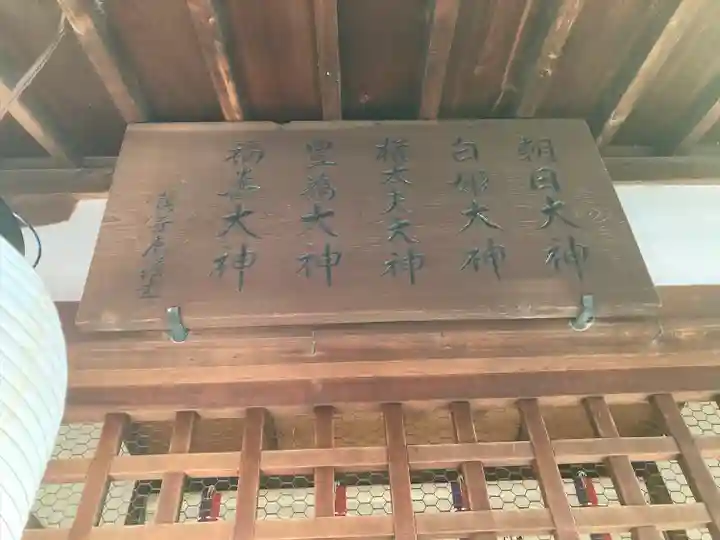 朝日大神
白姫大神
権太夫大神
豊繁大神
福善大神